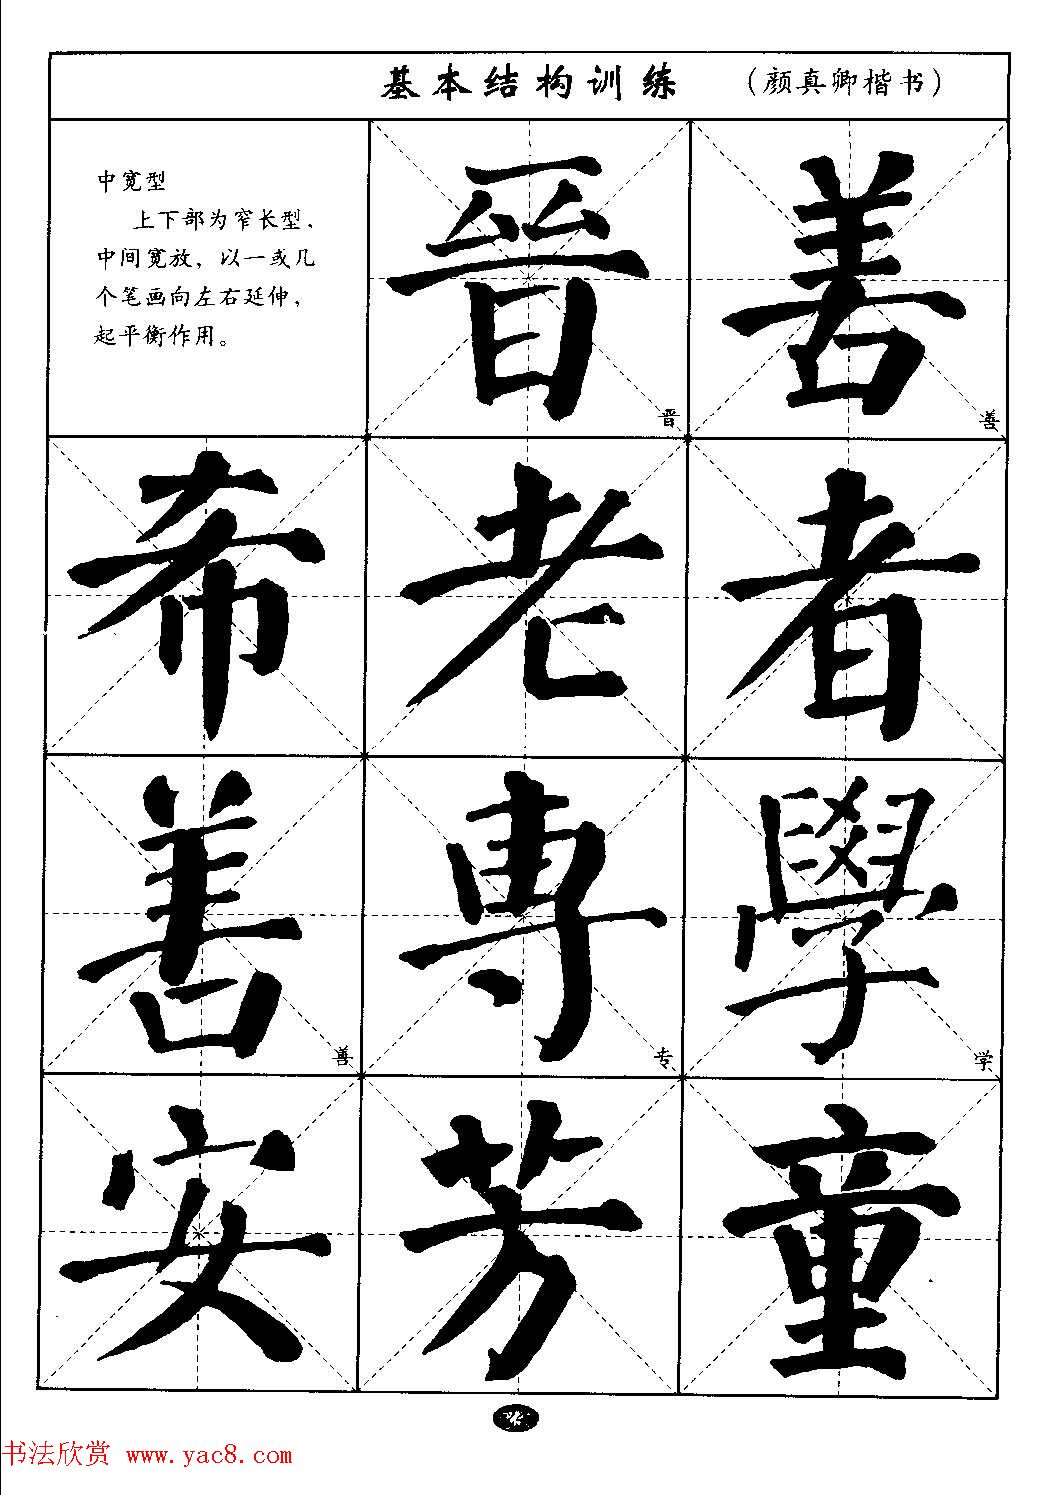 基本结构训练 （颜真卿楷书）
中宽型
上下部为窄长型，
中间宽放，以一或几
个笔画向左右延伸，
起平衡作用。
晉 善
晋 善
希 老 者
善 専 學
善 专 学
安 芳 童
书法欣赏 www.yac8.com